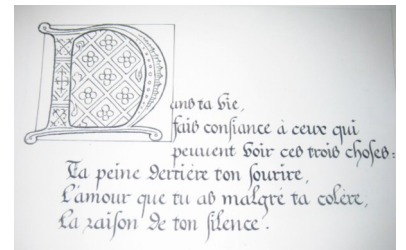 Dans ta vie,
fais confiance à ceux qui
peuvent voir ces trois choses :
Ta peine derrière ton sourire,
L'amour que tu as malgré ta colère,
La raison de ton silence.